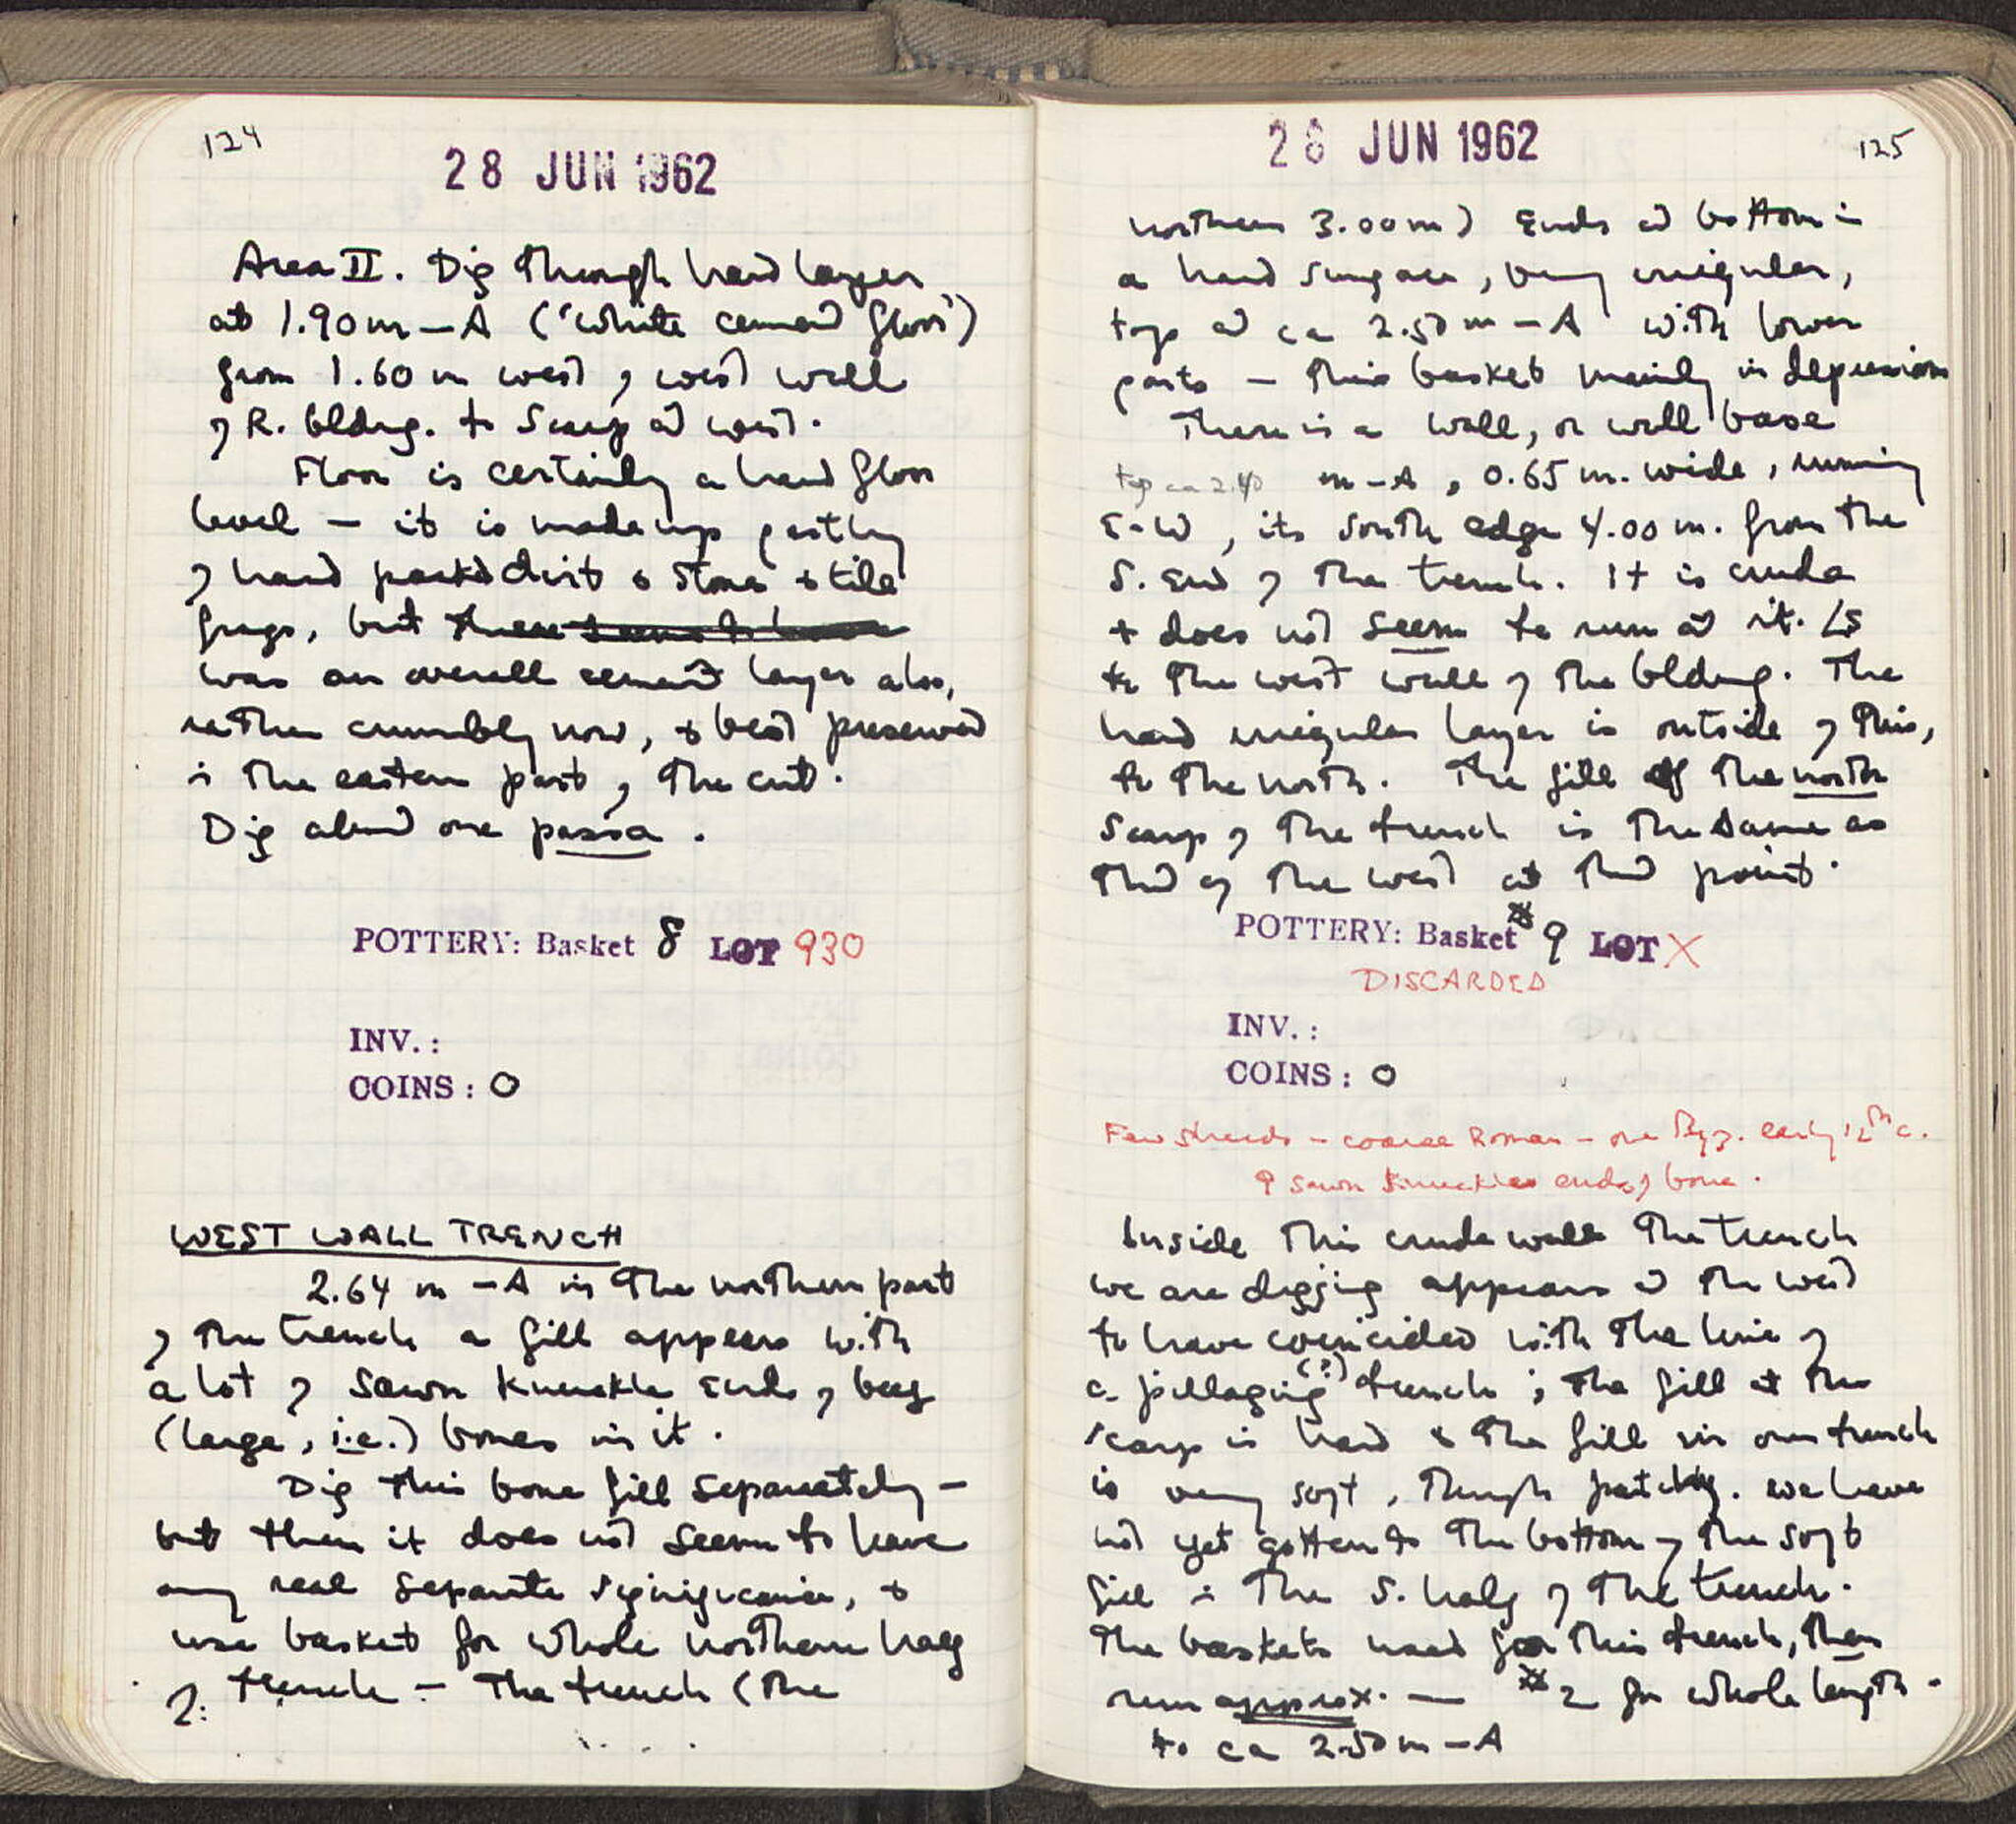 124
28 JUN 1962
Area II. Dig through hard layer
at 1.90 m - A ("white cement floor")
from 1.60 m west of west wall
of R. bldng. to scarp at west.
Floor is certainly a hard floor
level — it is made up partly
of hard packed dirt & stone & tile
frags, but there seems to have
was an overall cement layer also,
rather crumbly now, & best preserved
in the eastern part of the cut.
Dig about one passa.
POTTERY: Basket 8 LOT 930
INV.:
COINS: 0
WEST WALL TRENCH
2.64 m - A in the northern part
of the trench a fill appears with
a lot of sawn knuckle ends of beef
(large, i.e.) bones in it.
Dig this bone fill separately —
but then it does not seem to have
any real separate significance, &
use basket for whole northern half
of trench — The trench (the
28 JUN 1962
125
northern 3.00 m) ends at bottom in
a hard surface, very irregular,
top at ca 2.50 m - A with lower
parts — this basket mainly in depressions
There is a wall, or wall base
top ca 2.40 m - A, 0.65 m. wide, running
E-W, its south edge 4.00 m. from the
S. end of the trench. It is crude
& does not seem to run at rt. Ls
to the west wall of the bldng. The
hard irregular layer is outside of this,
to the north. The fill of the north
scarp of the trench is the same as
that of the west at that point.
POTTERY: Basket # 9 LOT X
DISCARDED
INV.:
COINS: 0
Few sherds - coarse Roman - one Byz. early 12th c.
9 sawn knuckles ends of bone.
Inside this crude wall the trench
we are digging appears at the west
to have coincided with the line of
a pillaging (?) trench; the fill at the
scarp is hard & the fill in our trench
is very soft, though patchy. We have
not yet gotten to the bottom of the soft
fill in the S. half of the trench.
The baskets used for this trench, then
run approx. — # 2 for whole length
to ca 2.50 m - A